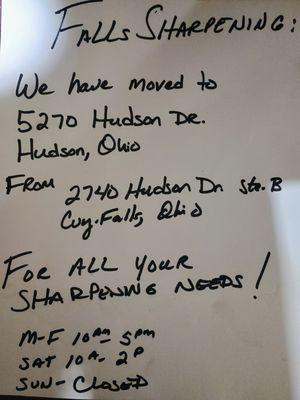 FALLS SHARPENING:
We have moved to
5270 Hudson DR.
Hudson, Ohio
FROM 2740 Hudson Dr. Ste. B
Cuy. Falls, Ohio
FOR ALL YOUR
SHARPENING NEEDS!
M-F 10am - 5pm
SAT 10A - 2P
SUN - CLOSED